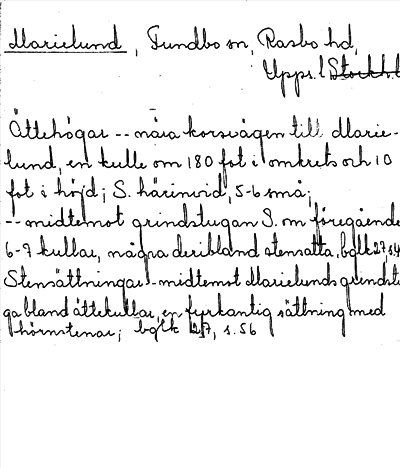 Marielund, Fundbo sn, Rasbo hd,
Upps. l Stockh. l
Ättehögar -- nära korsvägen till Marie-
lund, en kulle om 180 fot i omkrets och 10
fot i höjd; S. härinvid, 5-6 små;
-- midtemot grindstugan S. om föregående
6-7 kullar, några deribland stensatta, bglk 27, s.4
Stensättningar - midtemot Marielunds grindstu
ga bland ättekullar, en fyrkantig sättning med
hörnstenar; bglk 27, s. 56